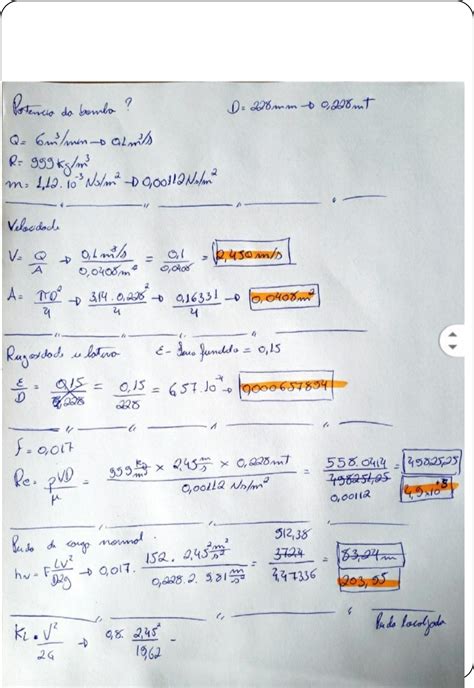 Potencia da bomba ? D= 228mm → 0,228mT
Q= 6m³/min → 0,1m³/s
R= 999 Kg/m³
m= 1,12.10⁻³ Ns/m² → 0,00112 Ns/m²
Velocidade
V= Q/A → 0,1m³/s / 0,0408m² = 0,1/0,0408 = 2,450m/s
A= πD²/4 → 3,14.0,228²/4 → 0,16331/4 → 0,0408m²
Rugosidade relativa ε- ferro fundido = 0,15
ε/D = 0,15/0,228 = 0,15/228 = 6,57.10⁻⁴ → 0,000657894
f= 0,017
Re= ρVD/μ = 999 Kg/m³ × 2,45 m/s × 0,228mT / 0,00112 Ns/m² = 558.0414 / 498251,25 / 0,00112 = 498251,25
4,9x10⁺⁵
Perda de carga normal.
hv= f LV²/D2g → 0,017. 152 . 2,45² m²/s² / 0,228.2.9,81 m/s² = 912,38 / 372,4 / 4,47336 = 83,24m
203,95
KL . V²/2G → 0,8. 2,45²/19,62 - Perda Localizada